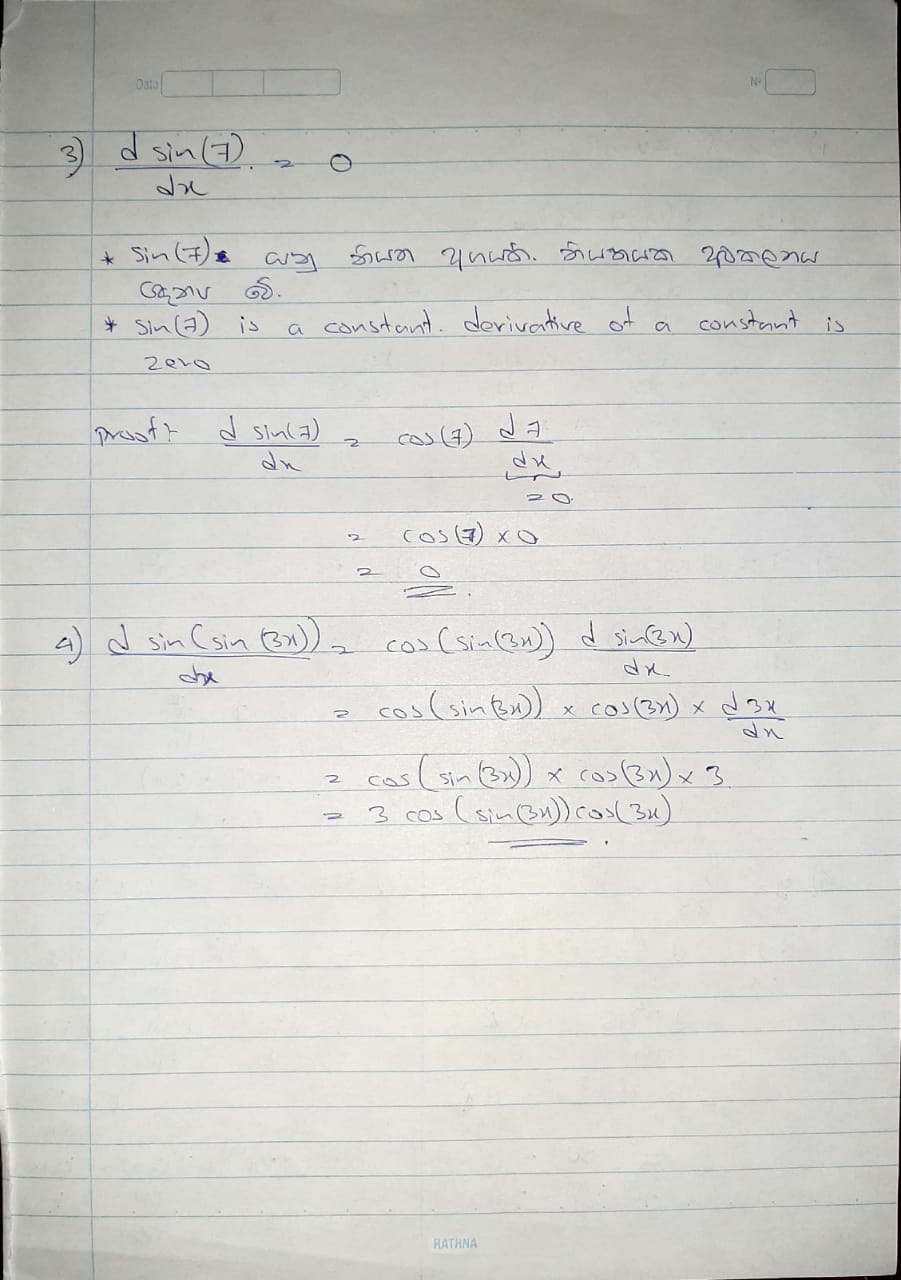 Date
No
3) d sin(7)/dx = 0
* sin(7) යනු නියත අගයකි. නියතයක අවකලනය
ශුන්‍ය වේ.
* sin(7) is a constant. derivative of a constant is
zero
proof:- d sin(7)/dx = cos(7) d7/dx
= 0
= cos(7) × 0
= 0
4) d sin(sin(3x))/dx = cos(sin(3x)) d sin(3x)/dx
= cos(sin(3x)) × cos(3x) × d3x/dx
= cos(sin(3x)) × cos(3x) × 3
= 3 cos(sin(3x))cos(3x)
RATHNA